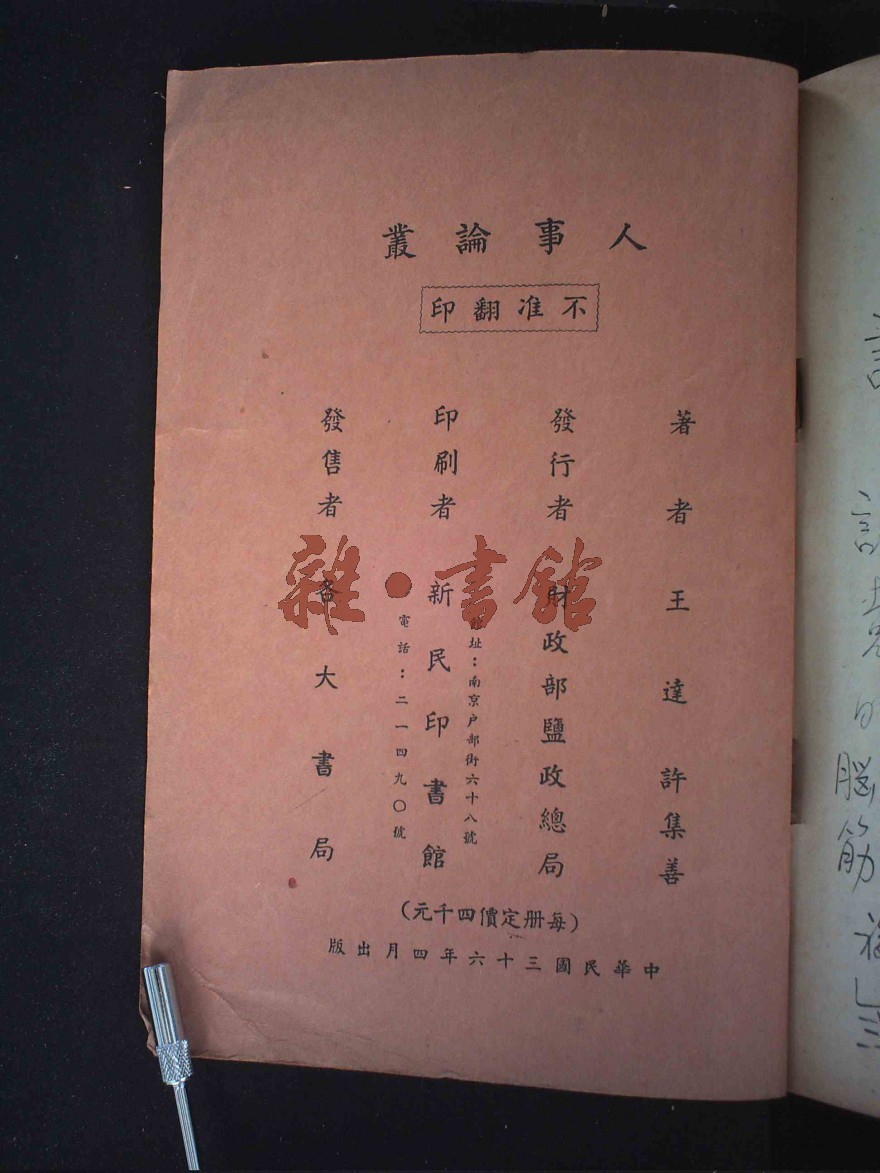 人事論叢
不准翻印
著者 王達 許集善
發行者 財政部鹽政總局
印刷者 新民印書館
地址：南京户部街六十八號
電話：二一四九〇號
發售者 各大書局
（每册定價四千元）
中華民國三十六年四月出版
雜·書館
腦筋